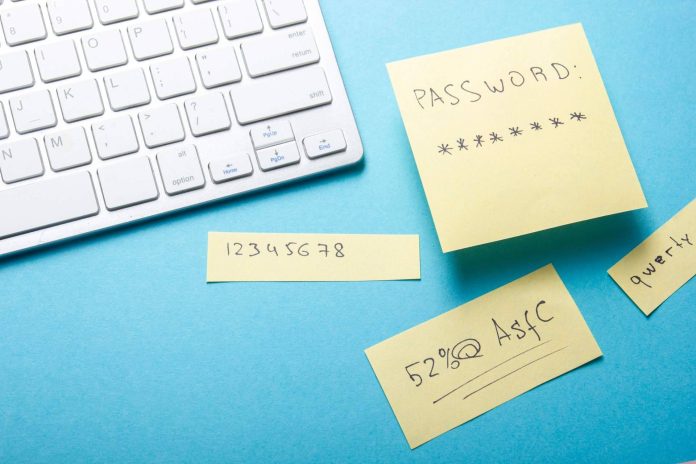 8
9
0
I
O
P
{
[
}
]
enter
return
J
K
L
:
;
"
'
shift
N
M
<
,
>
.
?
/
alt
option
Home
PgUp
PgDn
End
PASSWORD:
*******
12345678
qwerty
52%@ AsfC